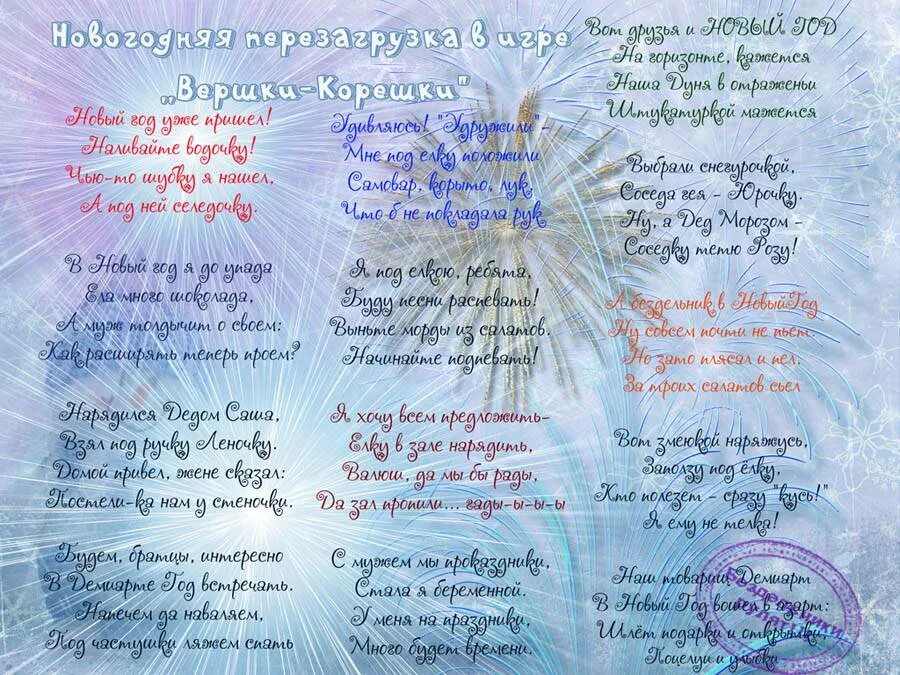 Новогодняя перезагрузка в игре
„Вершки-Корешки"
Новый год уже пришел!
Наливайте водочку!
Чью-то шубку я нашел,
А под ней селедочку.
В Новый год я до упада
Ела много шоколада,
А муж толдычит о своем:
Как расширять теперь проем?
Нарядился Дедом Саша,
Взял под ручку Леночку.
Домой привел, жене сказал:
Постели-ка нам у стеночки.
Будем, братцы, интересно
В Демиарте Год встречать.
Напечем да наваляем,
Под частушки ляжем спать
Удивляюсь! "Удружили"-
Мне под елку положили
Самовар, корыто, лук,
Что б не покладала рук
Я под елкою, ребята,
Буду песни распевать!
Выньте морды из салатов.
Начинайте подпевать!
Я хочу всем предложить-
Елку в зале нарядить,
Валюш, да мы бы рады,
Да зал пропили... гады-ы-ы-ы
С мужем мы проказдники,
Стала я беременной.
У меня на праздники,
Много будет времени.
Вот друзья и НОВЫЙ ГОД
На горизонте, кажется
Наша Дуня в отраженьи
Штукатуркой мажется
Выбрали снегурочкой,
Соседа гея - Юрочку.
Ну, а Дед Морозом -
Соседку тетю Розу!
А бездельник в НовыйГод
Ну совсем почти не пьет.
Но зато плясал и пел,
За троих салатов съел
Вот змеюкой наряжусь,
Заползу под ёлку,
Кто полезет - сразу "кусь!"
Я ему не телка!
Наш товарищ Демиарт
В Новый Год вошел в азарт:
Шлёт подарки и открытки!
Поцелуи и улыбки-
Бездельники